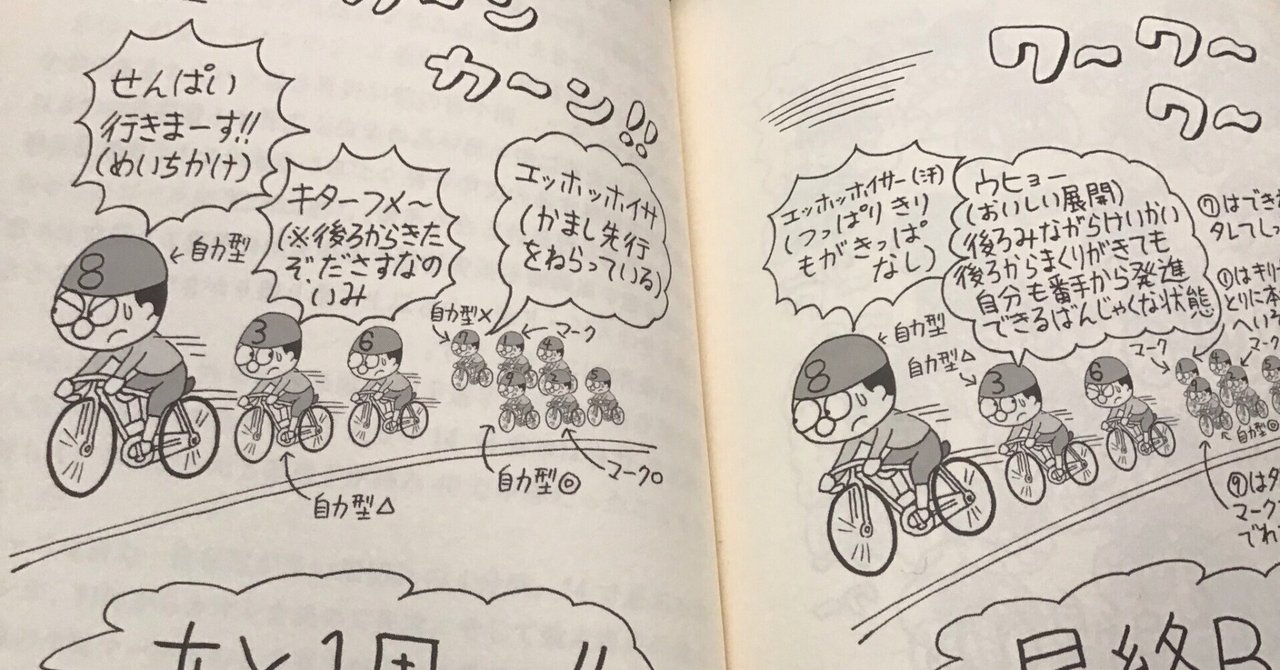 カーン
カーン!!
せんぱい
行きまーす!!
(めいちかけ)
←自力型
キターフメ〜
(※後ろからきた
ぞ、ださすなの
いみ)
エッホッホイサ
(かまし先行
をねらっている)
自力型×
マーク
自力型△
自力型◎
マーク○
8
3
6
7
4
9
2
5
あと1周
!!
ワーワー
ワー
エッホッホイサー(汗)
(つっぱりきり
もがきっぱ
なし)
ウヒョー
(おいしい展開)
後ろみながらけいかい
後ろからまくりがきても
自分も番手から発進
できるばんじゃくな状態
⑦はでき
タレてしっ
①はキリ
とりに本
へいろ
←自力型
自力型△
マーク
マーク
自力型◎
⑨はタ
マーク
でれ
8
3
6
4
最終B